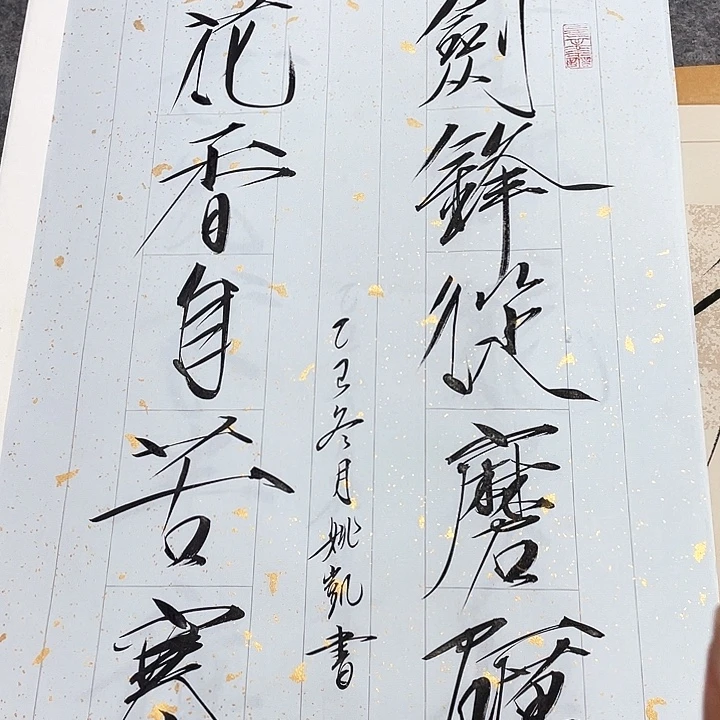 劍鋒從磨礪
乙巳冬月姚凱書
花香自苦寒